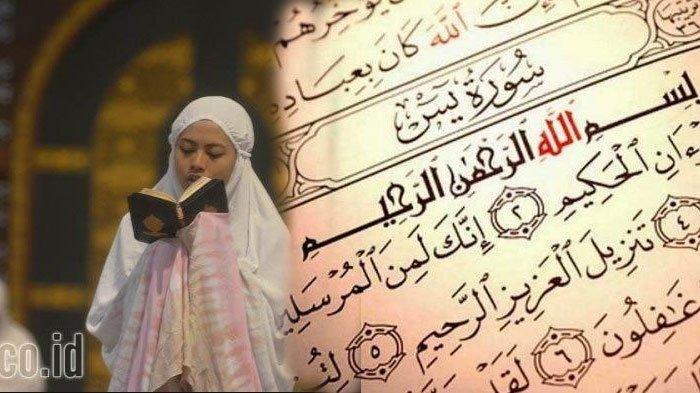 يُؤَخِّرُهُمْ
ٱللَّهَ كَانَ بِعِبَادِهِ
سُورَةُ يسٓ
بِسْمِ ٱللَّهِ ٱلرَّحْمَٰنِ ٱلرَّحِيمِ
ءَانِ ٱلْحَكِيمِ ٢ إِنَّكَ لَمِنَ ٱلْمُرْسَلِي
٤ تَنزِيلَ ٱلْعَزِيزِ ٱلرَّحِيمِ ٥ لِتُ
غَٰفِلُونَ ٦ لَقَدْ
co.id